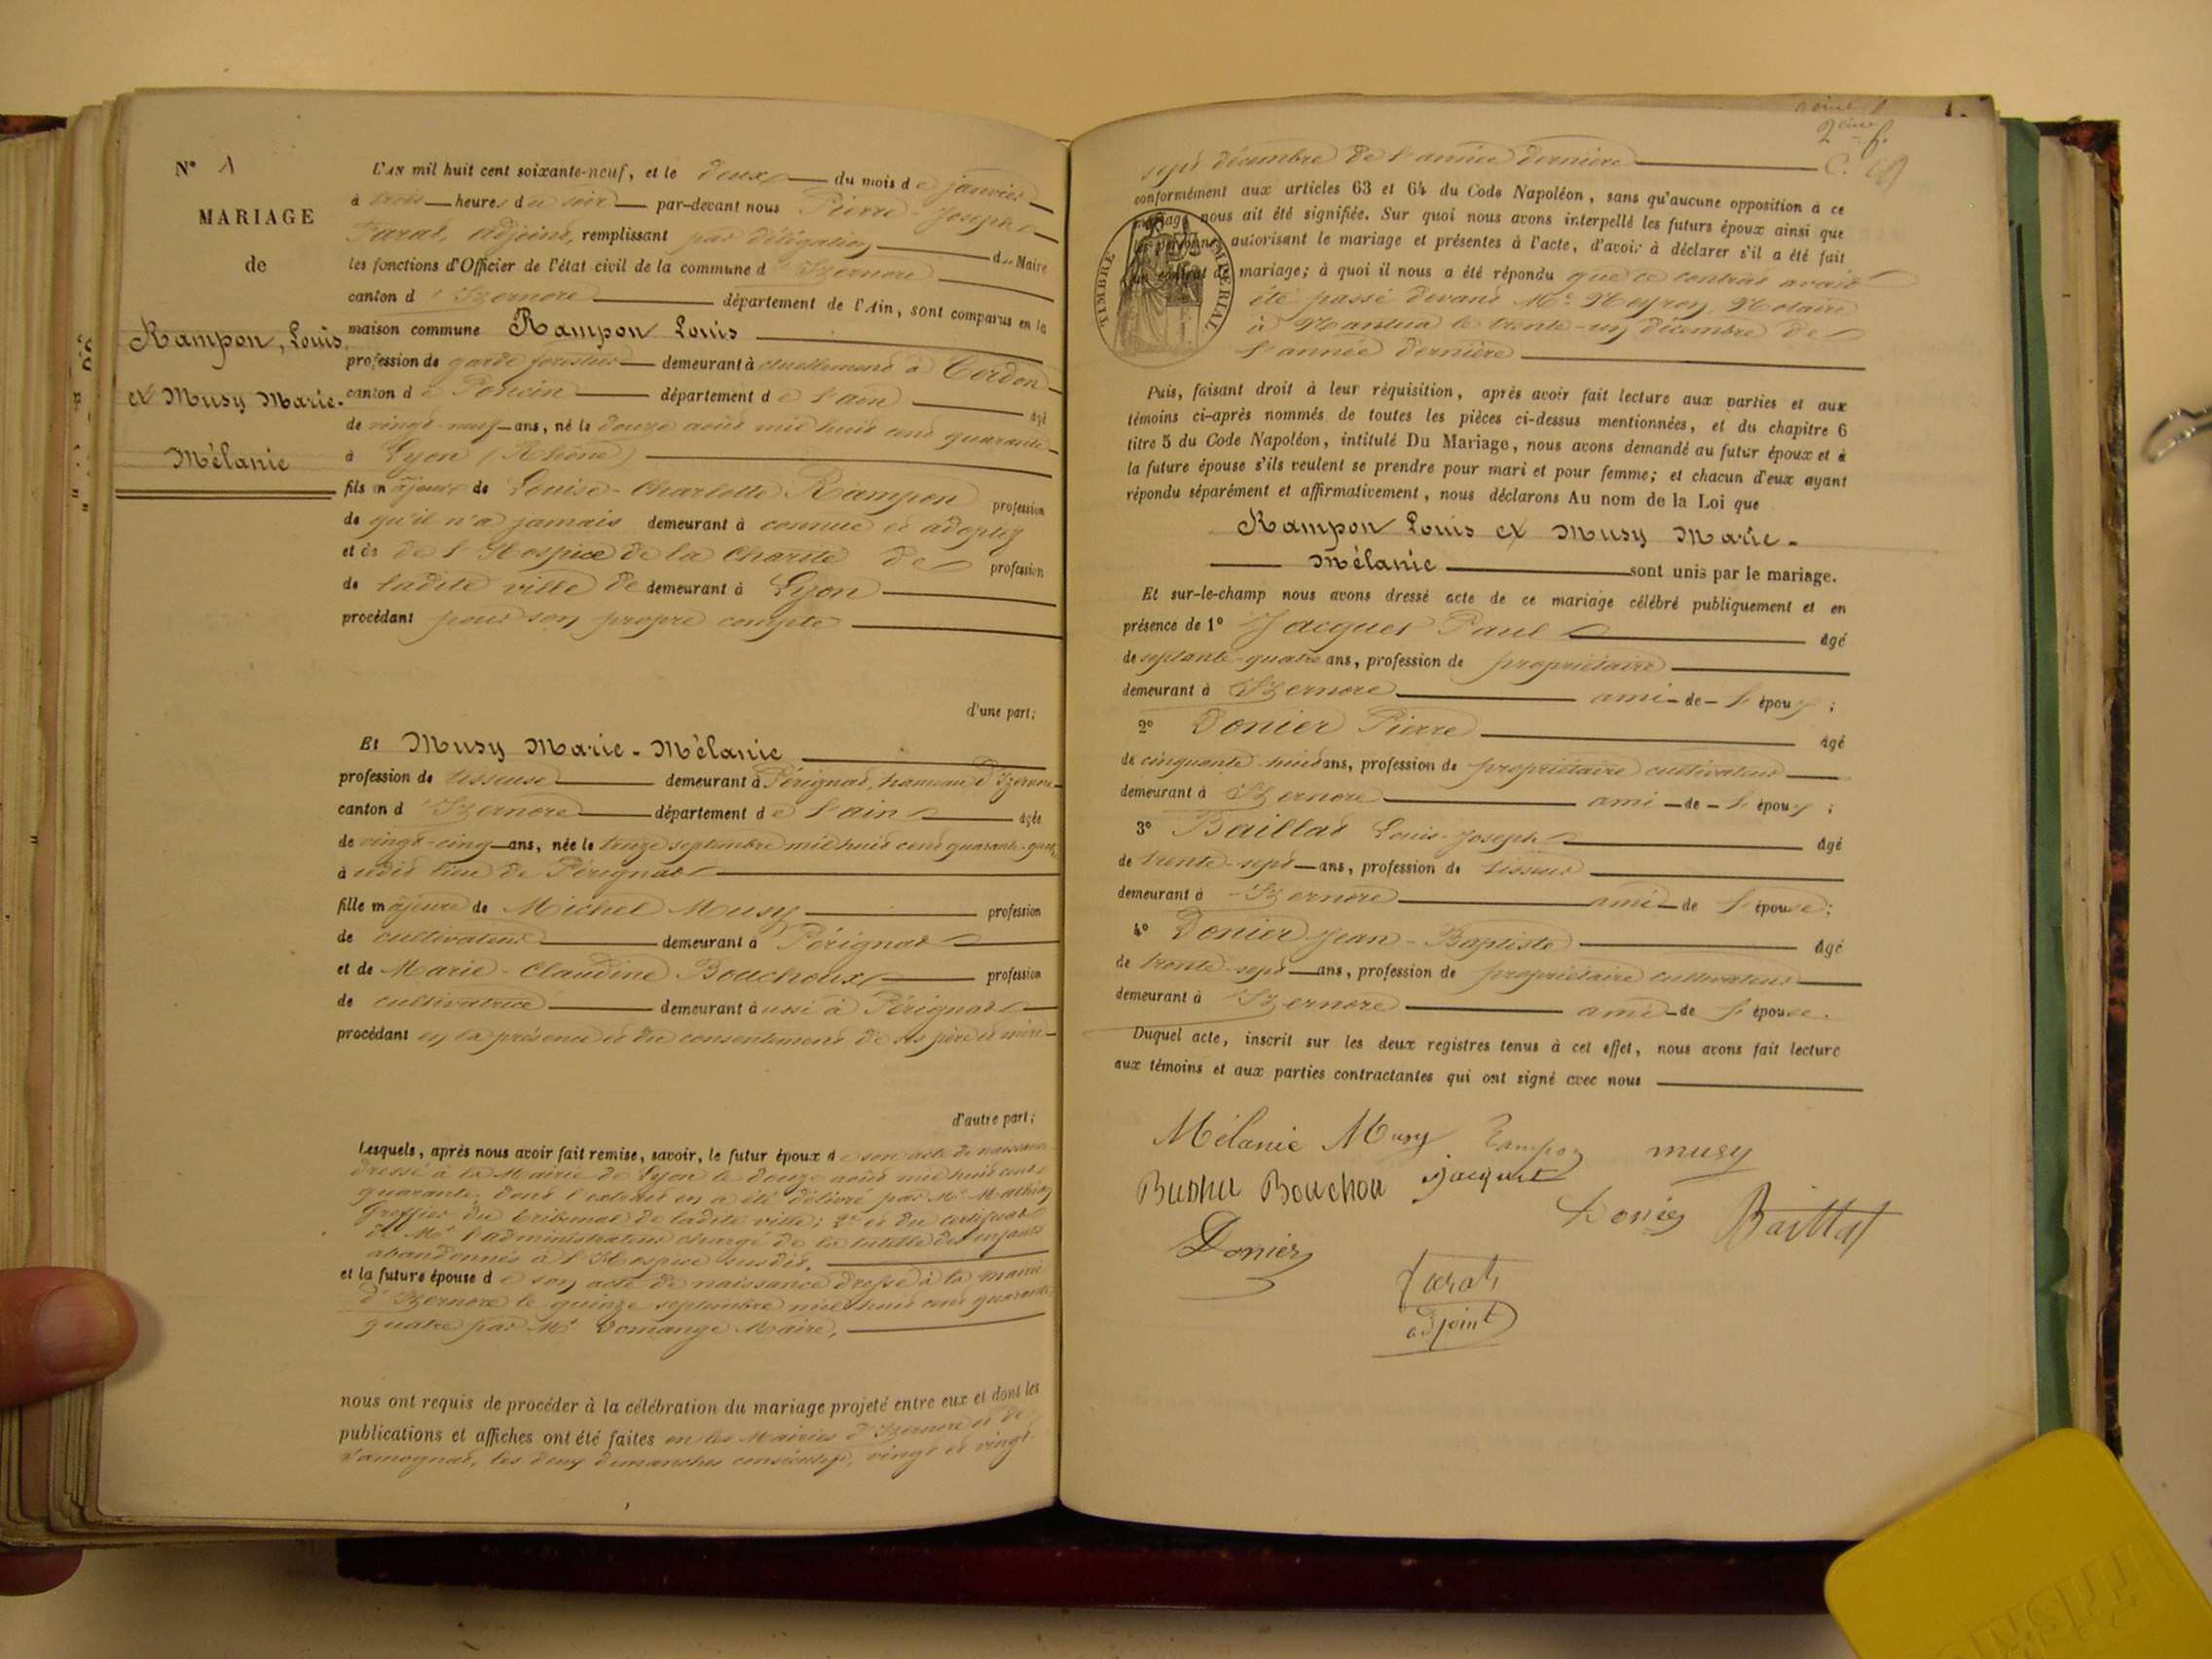 N° 1
MARIAGE
de
Rampon, Louis
et Musy Marie-
Mélanie
L'AN mil huit cent soixante-neuf, et le deux du mois de janvier
à trois heures du soir par-devant nous Pierre-Joseph
Tarat, adjoint, remplissant par délégation du Maire
les fonctions d'Officier de l'état civil de la commune d'Izernore
canton d'Izernore département de l'Ain, sont comparus en la
maison commune Rampon Louis
profession de garde forestier demeurant actuellement à Cerdon
canton de Poncin département de l'ain âgé
de vingt-neuf ans, né le douze août mil huit cent quarante
à Lyon (Rhône)
fils majeur de Louise-Charlotte Rampon profession
de qu'il n'a jamais demeurant à connue et adoptif
et de de l'Hospice de la Charité de profession
de ladite ville de demeurant à Lyon
procédant pour son propre compte
d'une part;
Et Musy Marie-Mélanie
profession de tisseuse demeurant à Pérignat, hameau d'Izernore
canton d'Izernore département de l'ain âgée
de vingt-cinq ans, née le treize septembre mil huit cent quarante-quatre
à udit lieu de Pérignat
fille majeure de Michel Musy profession
de cultivateur demeurant à Pérignat
et de Marie-Claudine Bouchoux profession
de cultivatrice demeurant aussi à Pérignat
procédant en la présence et du consentement de ses père et mère
d'autre part;
Lesquels, après nous avoir fait remise, savoir, le futur époux de son acte de naissance
dressé à la Mairie de Lyon le douze août mil huit cent
quarante, dont l'extrait en a été délivré par Mr Mathias
Greffier du tribunal de ladite ville; 2° et du certificat
de Mr l'administrateur chargé de la tutelle des enfants
abandonnés à l'Hospice susdit.
et la future épouse de son acte de naissance dressé à la mairie
d'Izernore le quinze septembre mil huit cent quarante
quatre par Mr Domange Maire,
nous ont requis de procéder à la célébration du mariage projeté entre eux et dont les
publications et affiches ont été faites en les Mairies d'Izernore et de
Samognat, les deux dimanches consécutifs, vingt et vingt
2ème f.
sept décembre de l'année dernière
conformément aux articles 63 et 64 du Code Napoléon, sans qu'aucune opposition à ce
mariage nous ait été signifiée. Sur quoi nous avons interpellé les futurs époux ainsi que
autorisant le mariage et présentes à l'acte, d'avoir à déclarer s'il a été fait
mariage; à quoi il nous a été répondu que ce contrat avait
été passé devant Me Neyron Notaire
à Nantua le trente-un décembre de
l'année dernière
TIMBRE IMPERIAL
Puis, faisant droit à leur réquisition, après avoir fait lecture aux parties et aux
témoins ci-après nommés de toutes les pièces ci-dessus mentionnées, et du chapitre 6
titre 5 du Code Napoléon, intitulé Du Mariage, nous avons demandé au futur époux et à
la future épouse s'ils veulent se prendre pour mari et pour femme; et chacun d'eux ayant
répondu séparément et affirmativement, nous déclarons Au nom de la Loi que
Rampon Louis et Musy Marie-
Mélanie sont unis par le mariage.
Et sur-le-champ nous avons dressé acte de ce mariage célébré publiquement et en
présence de 1° Jacquet Paul âgé
de septante-quatre ans, profession de propriétaire
demeurant à Izernore ami de l'époux;
2° Donier Pierre âgé
de cinquante-huit ans, profession de propriétaire cultivateur
demeurant à Izernore ami de l'époux;
3° Baillat Louis-Joseph âgé
de trente-sept ans, profession de tisseur
demeurant à Izernore ami de l'épouse;
4° Donier Jean-Baptiste âgé
de trente-sept ans, profession de propriétaire cultivateur
demeurant à Izernore ami de l'épouse.
Duquel acte, inscrit sur les deux registres tenus à cet effet, nous avons fait lecture
aux témoins et aux parties contractantes qui ont signé avec nous
Mélanie Musy Rampon musy
Bouchou Jacquet
Donier Baillat
Donier
Tarat
adjoint